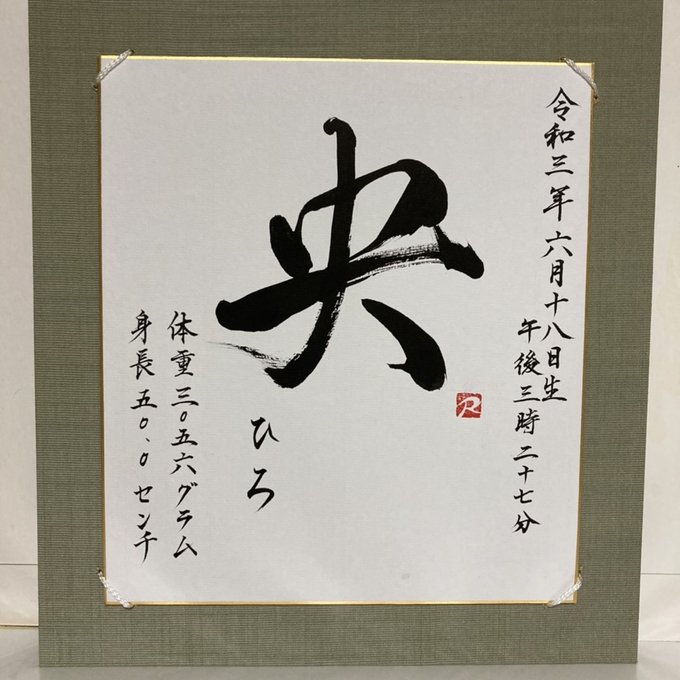 令和三年六月十八日生
午後三時二十七分
央
ひろ
体重三〇五六グラム
身長五〇.〇センチ